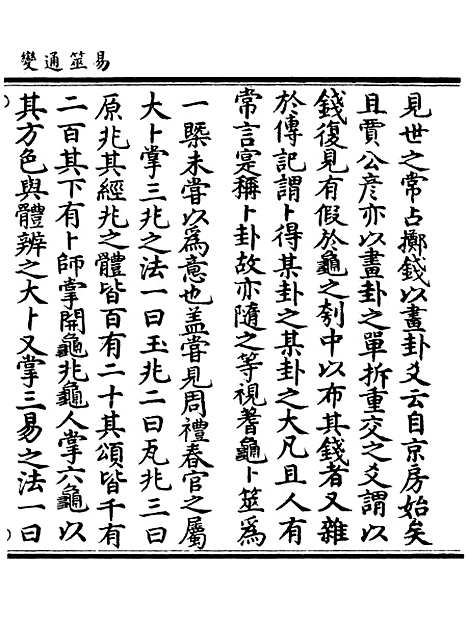 易筮通變
見世之常占擲錢以畫卦爻云自京房始矣
且賈公彦亦以畫卦之單折重交之爻謂以
錢復見有假於龜之刳中以布其錢者又雜
於傳記謂卜得某卦之某卦之大凡且人有
常言寔稱卜卦故亦隨之等視蓍龜卜筮爲
一槩未嘗以爲意也盖嘗見周禮春官之屬
大卜掌三兆之法一曰玉兆二曰瓦兆三曰
原兆其經兆之體皆百有二十其頌皆千有
二百其下有卜師掌開龜兆龜人掌六龜以
其方色與體辨之大卜又掌三易之法一曰